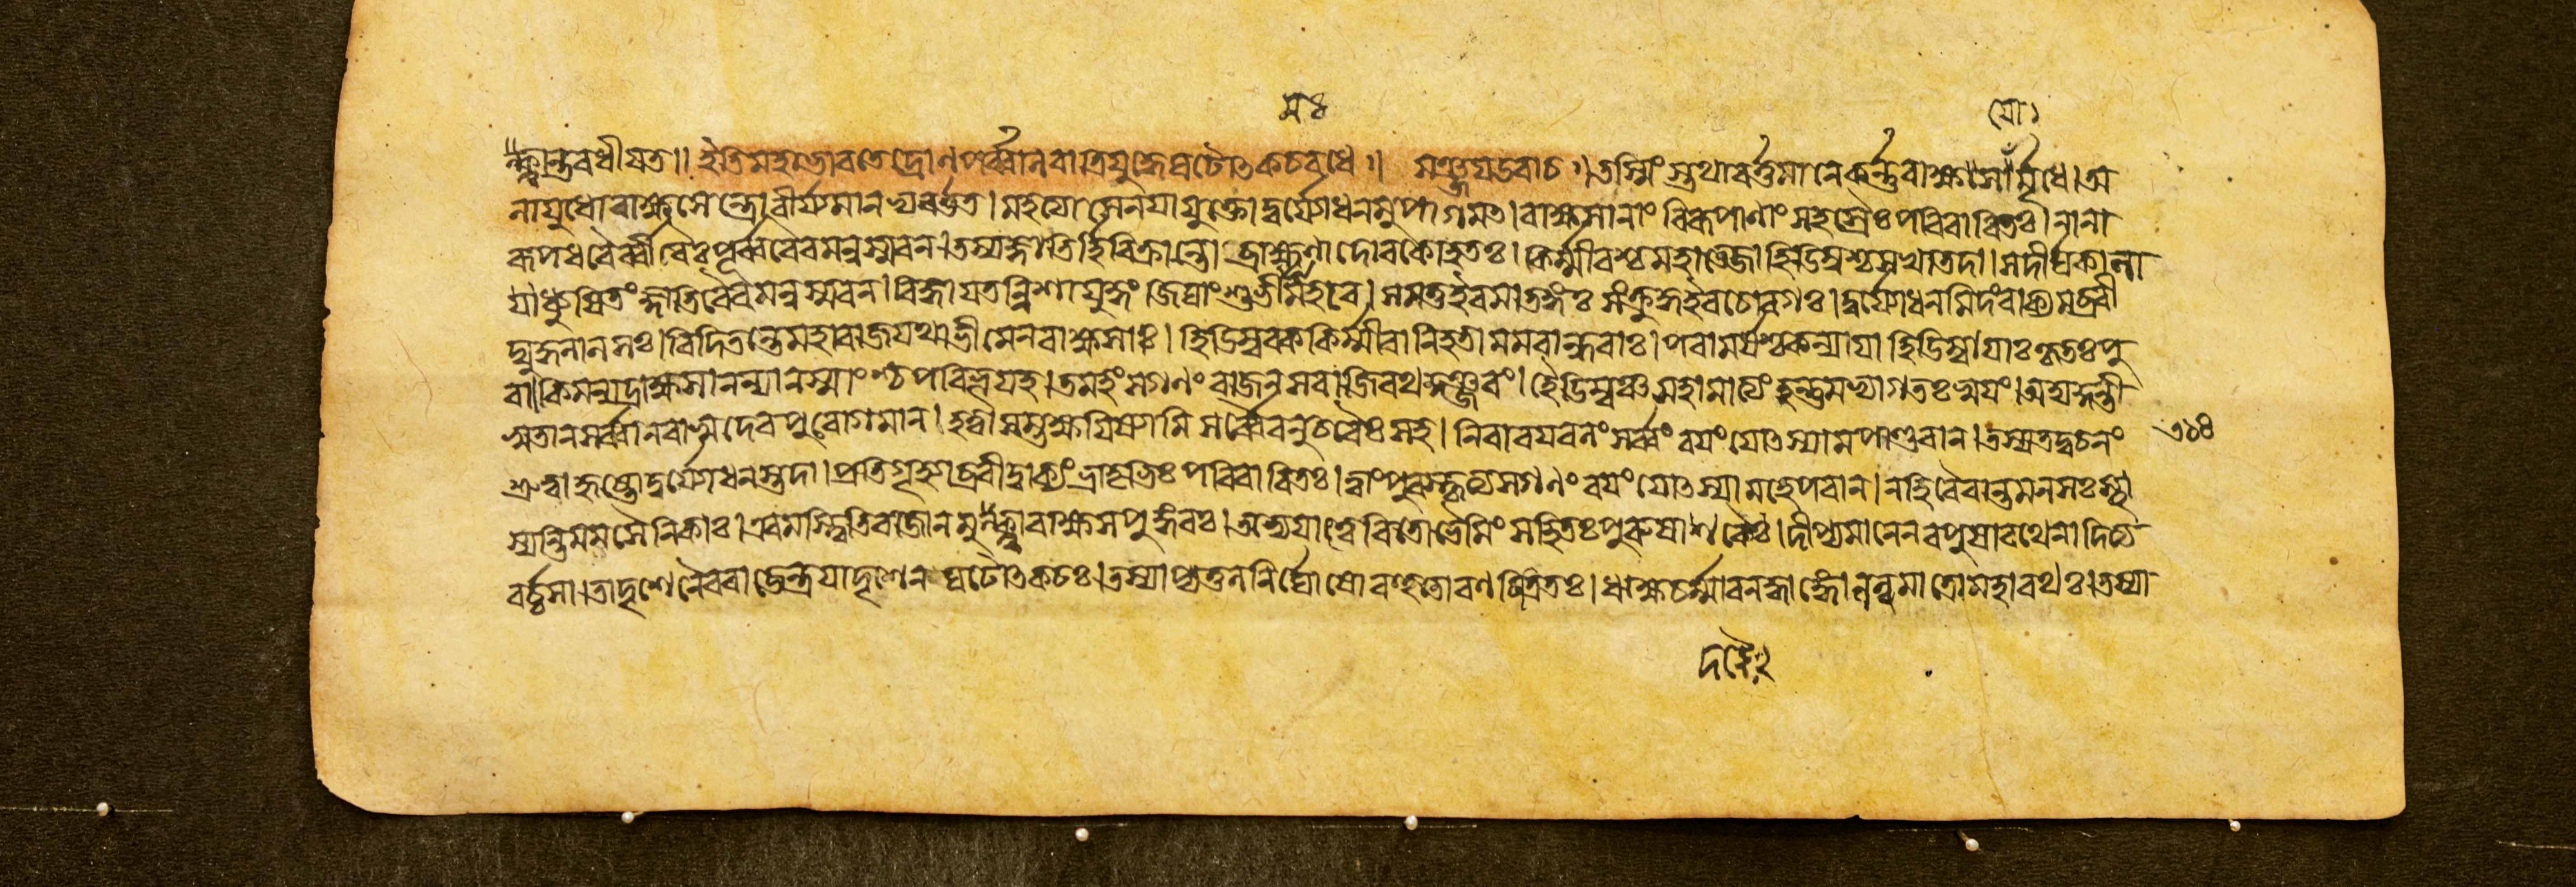 ইতি মহাভারতে দ্রোণপর্ব্বনি রাত্রিযুদ্ধে ঘটোৎকচবধে ॥ সঞ্জয় উবাচ ॥ তস্মিংস্তথা বর্ত্তমানে কর্ন্নরাক্ষসয়োর্মৃধে। অ
লায়ুধো রাক্ষসেন্দ্রো বীর্য্যমানভ্যবর্ত্তত। মহত্যা সেনয়া যুক্তো দুর্য্যোধনমুপাগমৎ। রাক্ষসানাং বিরূপাণাং সহস্রৈঃ পরিবারিতঃ। নানা
রূপধরৈর্ব্বীরৈঃ পূর্ব্ববৈরমনুস্মরন। তস্য জ্ঞাতির্হি বিক্রান্তো ব্রাহ্মণাদো বকো হতঃ। কির্ম্মীরশ্চ মহাতেজা হিডিম্বশ্চ সখা তদা। স দীর্ঘকালা
ধ্যুষিতং জ্ঞাতিবৈরমনুস্মরন। বিজ্ঞায়তন্নিশাযুদ্ধং জিঘাংশুর্ভীমমাহবে। স মত্ত ইব মাতঙ্গঃ সংক্রুদ্ধ ইব চোরগঃ। দুর্য্যোধনমিদং বাক্যমব্রবী
দ্যুদ্ধলালসঃ। বিদিতন্তে মহারাজ যথা ভীমেন রাক্ষসাঃ। হিডিম্ববককির্ম্মীরা নিহতা মম বান্ধবাঃ। পরামর্ষশ্চ কন্যায়া হিডিম্বায়াঃ কৃতঃ পু
রা। কিমন্যদ্রাক্ষসানন্যানস্মাংশ্চ পরিভূয় হ। তমহং সগণং রাজন সবাজিরথকুঞ্জরং। হৈডিম্বঞ্চ সহামাত্যং হন্তুমভ্যাগতঃ স্বয়ং। অদ্য কুন্তী
সুতান সর্ব্বান বাসুদেবপুরোগমান। হত্বা সম্ভক্ষয়িষ্যামি সর্ব্বৈরনুচরৈঃ সহ। নিবারয় বলং সর্ব্বং বয়ং যোৎস্যাম পাণ্ডবান। তস্য তদ্বচনং
শ্রুত্বা হৃষ্টো দুর্য্যোধনস্তদা। প্রতিগৃহ্যাব্রবীদ্বাক্যং ভ্রাতৃভিঃ পরিবারিতঃ। ত্বাং পুরস্কৃত্য সগণং বয়ং যোৎস্যামহে পরান। নহি বৈরান্তমনসঃ স্থা
স্যন্তি মম সৈনিকাঃ। এবমস্ত্বিতি রাজানমুক্ত্বা রাক্ষসপুঙ্গবঃ। অভ্যয়াত্ত্বরিতো ভৈমিং সহিতঃ পুরুষাশকৈঃ। দীপ্যমানেন বপুষা রথেনাদিত্য
বর্চ্চসা। তাদৃশেনৈব রাজেন্দ্র যাদৃশেন ঘটোৎকচঃ। তস্যাপ্যতুলনির্ঘোষো বহুতোরণচিত্রিতঃ। ঋক্ষচর্ম্মাবনদ্ধাঙ্গো নল্বমাত্রো মহারথঃ। তস্যা